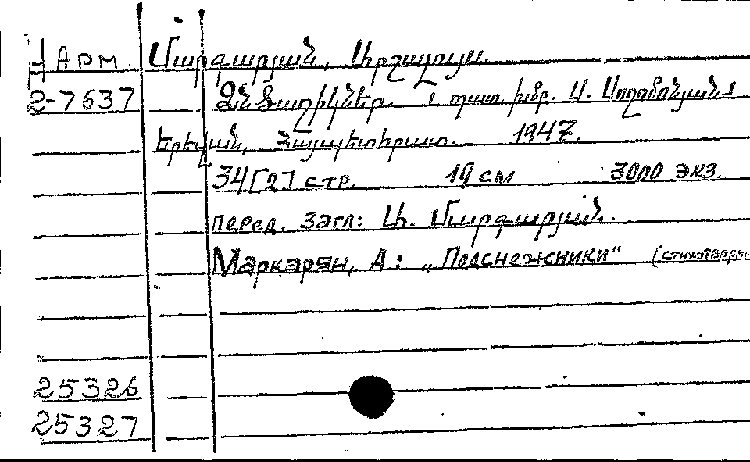 Ч АРМ Մարգարյան, Արշալույս.
2-7637 Ձնծաղիկներ. պատ. խմբ. Ս. Սողոմոնյան
Երևան, Հայպետհրատ. 1947.
34[2] стр. 19 см 3000 экз.
перед. загл: Ար. Մարգարյան.
Маркарян, А: „Подснежники“ (стихотворения
25326
25327